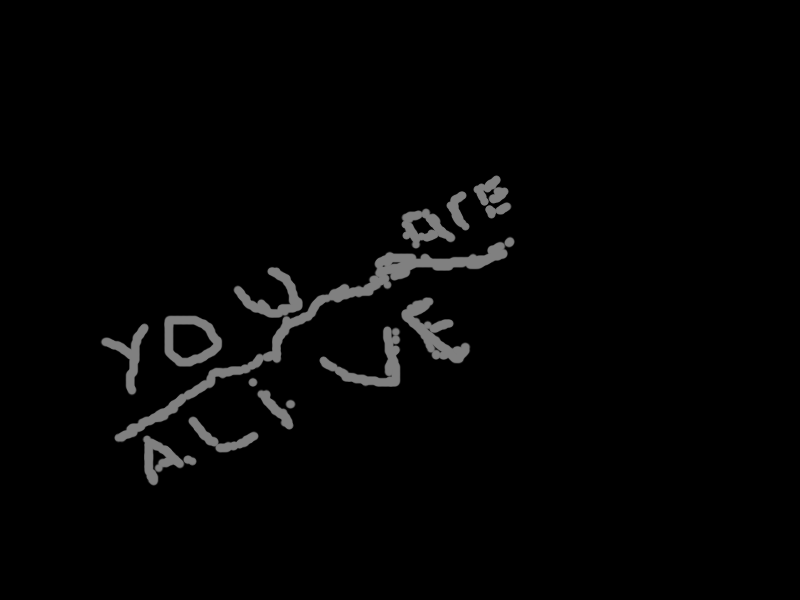 YOU are
ALiVE